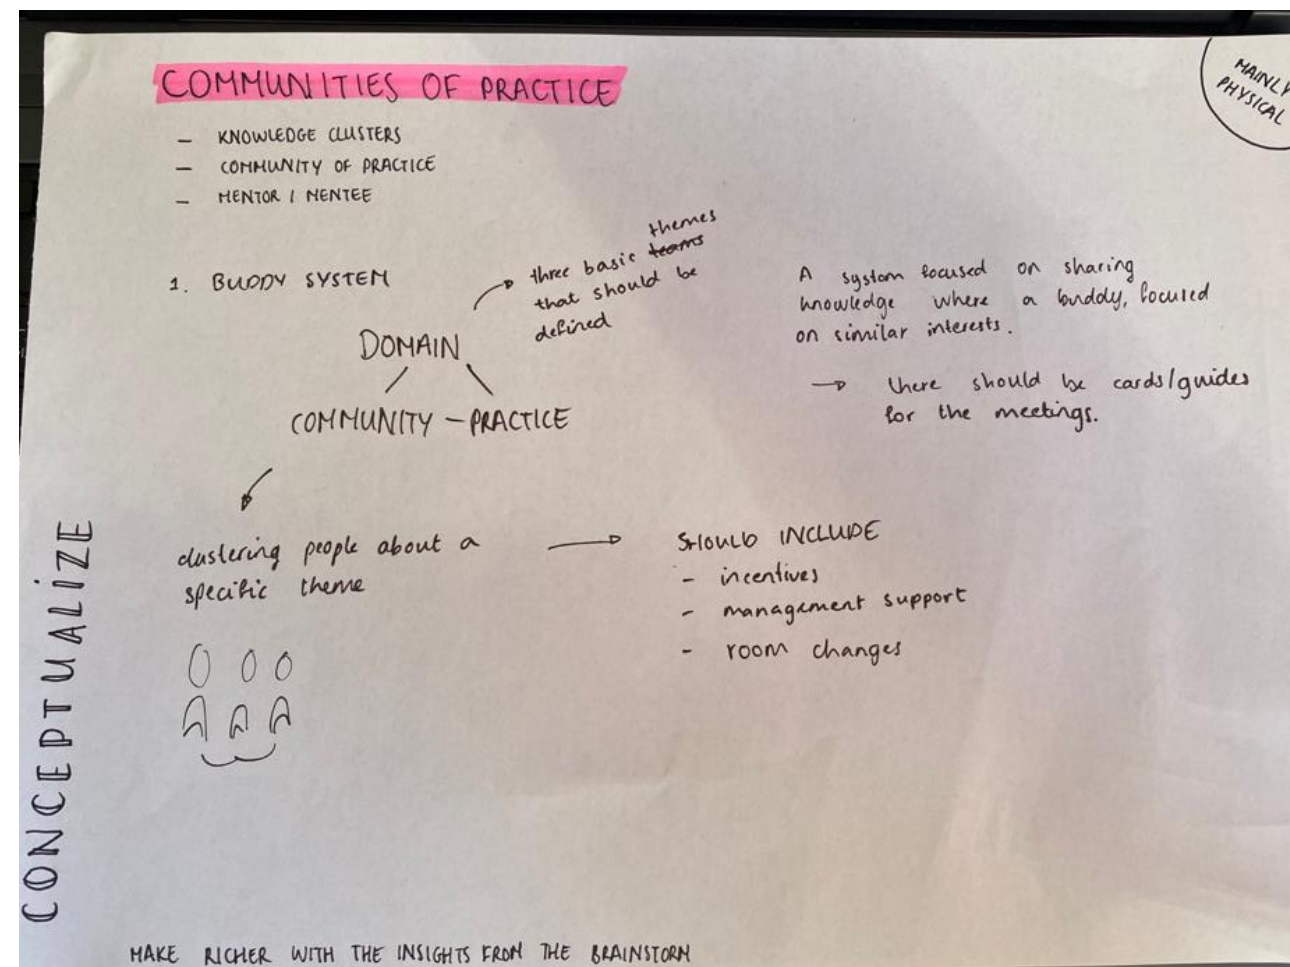 COMMUNITIES OF PRACTICE
MAINLY
PHYSICAL
- KNOWLEDGE CLUSTERS
- COMMUNITY OF PRACTICE
- MENTOR / MENTEE
1. BUDDY SYSTEM
themes
three basic teams
that should be
defined
DOMAIN
COMMUNITY - PRACTICE
A system focused on sharing
knowledge where a buddy, focused
on similar interests.
→ there should be cards/guides
for the meetings.
clustering people about a
specific theme
→ SHOULD INCLUDE
- incentives
- management support
- room changes
CONCEPTUALIZE
MAKE RICHER WITH THE INSIGHTS FROM THE BRAINSTORM